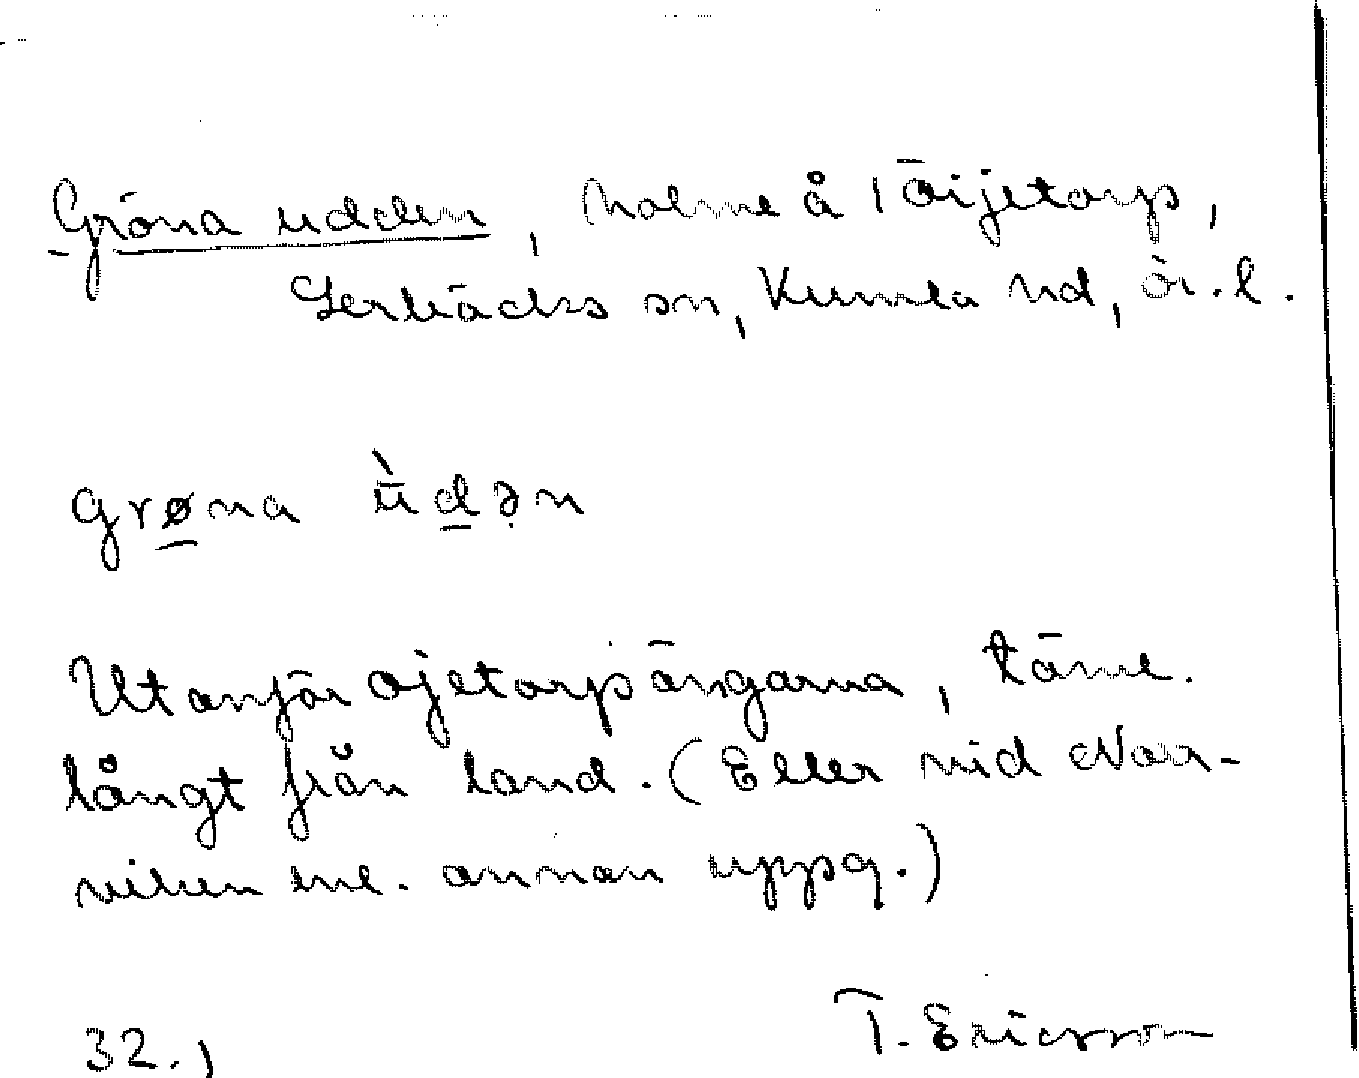 Gröna udden, holme å Öijetorp,
Lerbäcks sn, Kumla hd, Ör. l.
grøna ùdən
Utanför Öjetorpängarna, täml.
långt från land. (Eller vid Norr-
viken enl. annan uppg.)
T. Ericsson
32.)